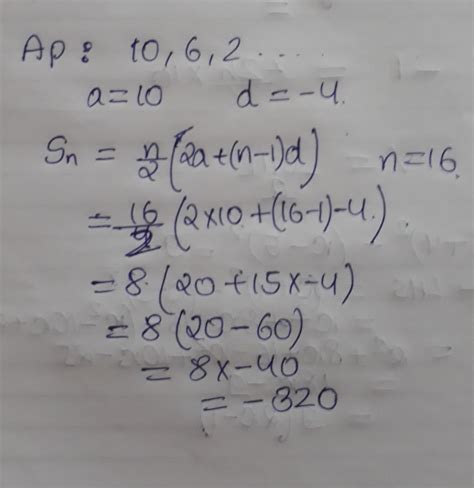 Ap : 10, 6, 2 ....
a = 10 d = -4.
Sn = n/2 (2a+(n-1)d) n=16.
= 16/2 (2×10 + (16-1)-4.)
= 8 (20 + 15×-4)
= 8 (20 - 60)
= 8×-40
= -320